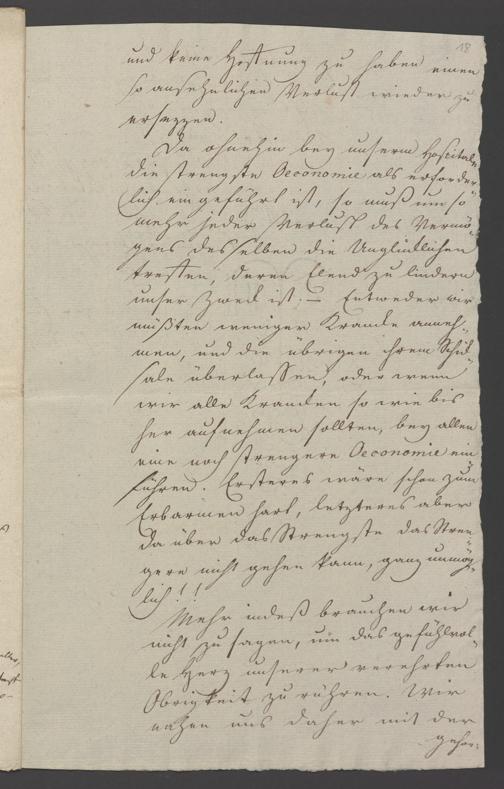 18
und keine Hoffnung zu haben einen
so ansehnlichen Verlust wieder zu
ersezzen.
Da ohnehin bey unserm Hospitale
die strengste Oeconomie als erforder-
lich eingeführt ist, so muß um so
mehr jeder Verlust des Vermö-
gens desselben die Unglüklichen
treffen, deren Elend zu lindern
unser Zwek ist. — Entweder wir
müßten weniger Kranke anneh-
men, und die übrigen ihrem Schik-
sale überlassen, oder wenn
wir alle Kranken so wie bis
her aufnehmen sollten, bey allen
eine noch strengere Oeconomie ein
führen. Ersteres wäre schon zum
Erbarmen hart, letzteres aber
da über das Strengste das Stren-
gere nicht gehen kann, ganz unmög-
lich!!
Mehr indeß brauchen wir
nicht zu sagen, um das gefühlvol-
le Herz unserer verehrten
Obrigkeit zu rühren. Wir
nahen uns daher mit der
gehor-